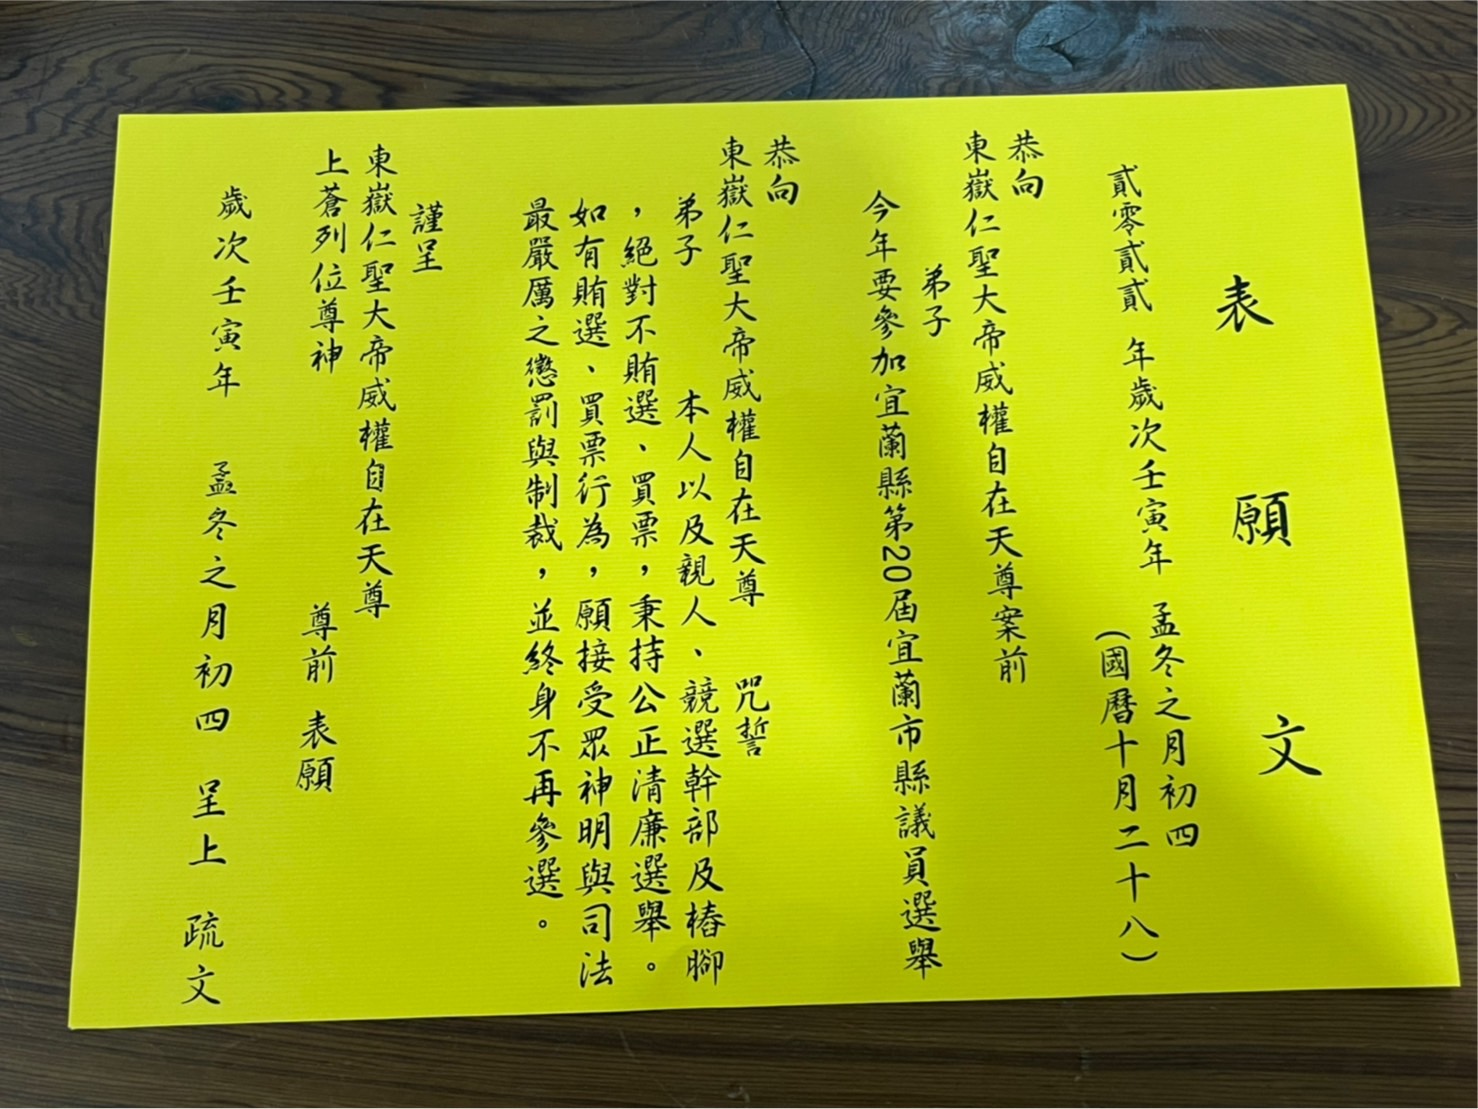 表願文
貳零貳貳 年歲次壬寅年 孟冬之月初四
(國曆十月二十八)
恭向
東嶽仁聖大帝威權自在天尊案前
弟子
今年要參加宜蘭縣第20屆宜蘭市縣議員選舉
恭向
東嶽仁聖大帝威權自在天尊 咒誓
弟子 本人以及親人、競選幹部及樁腳
，絕對不賄選、買票，秉持公正清廉選舉。
如有賄選、買票行為，願接受眾神明與司法
最嚴厲之懲罰與制裁，並終身不再參選。
謹呈
東嶽仁聖大帝威權自在天尊
上蒼列位尊神 尊前 表願
歲次壬寅年 孟冬之月初四 呈上 疏文